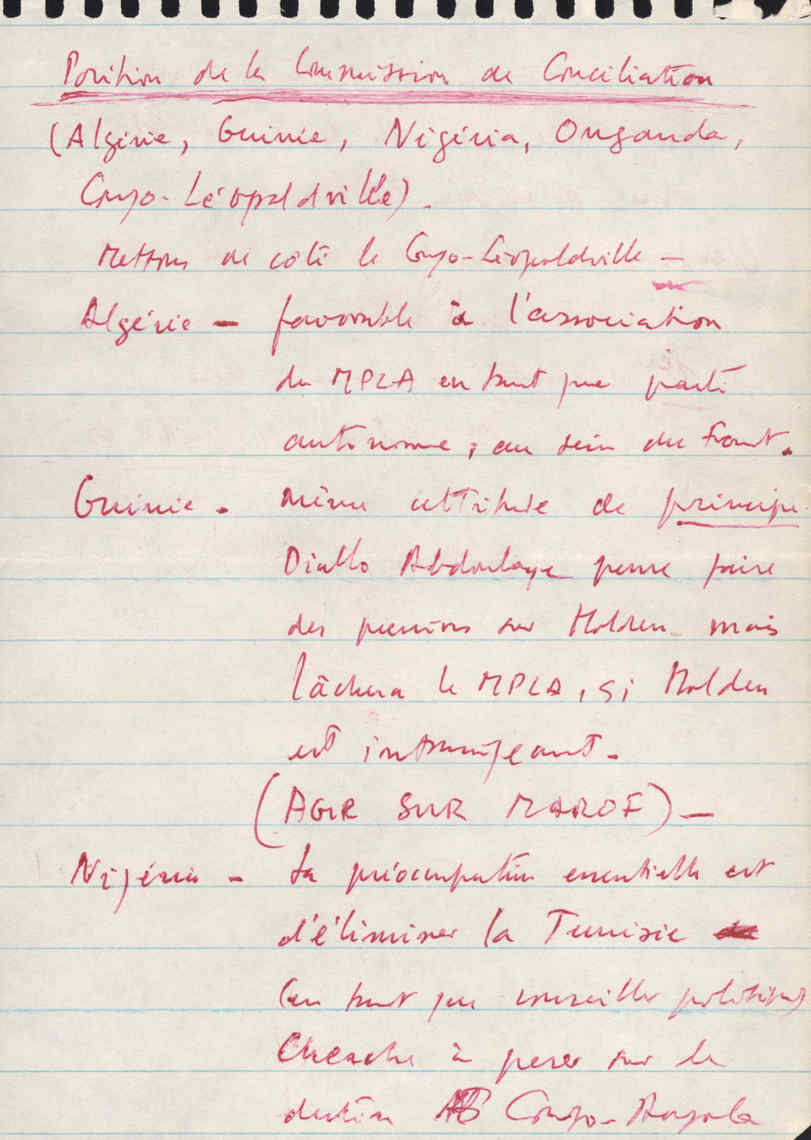 Position de la Commission de Conciliation
(Algérie, Guinée, Nigéria, Ouganda,
Congo-Léopoldville).
Mettons de côté le Congo-Léopoldville —
Algérie — favorable à l'association
du MPLA en tant que parti
autonome, au sein du Front.
Guinée. Même attitude de principe.
Diallo Abdoulaye pense faire
des pressions sur Holden mais
lâchera le MPLA, si Holden
est intransigeant —
(AGIR SUR MAROF) —
Nigéria — La préoccupation essentielle est
d'éliminer la Tunisie
(en tant que conseiller politique)
Cherche à peser sur le
Congo-Angola